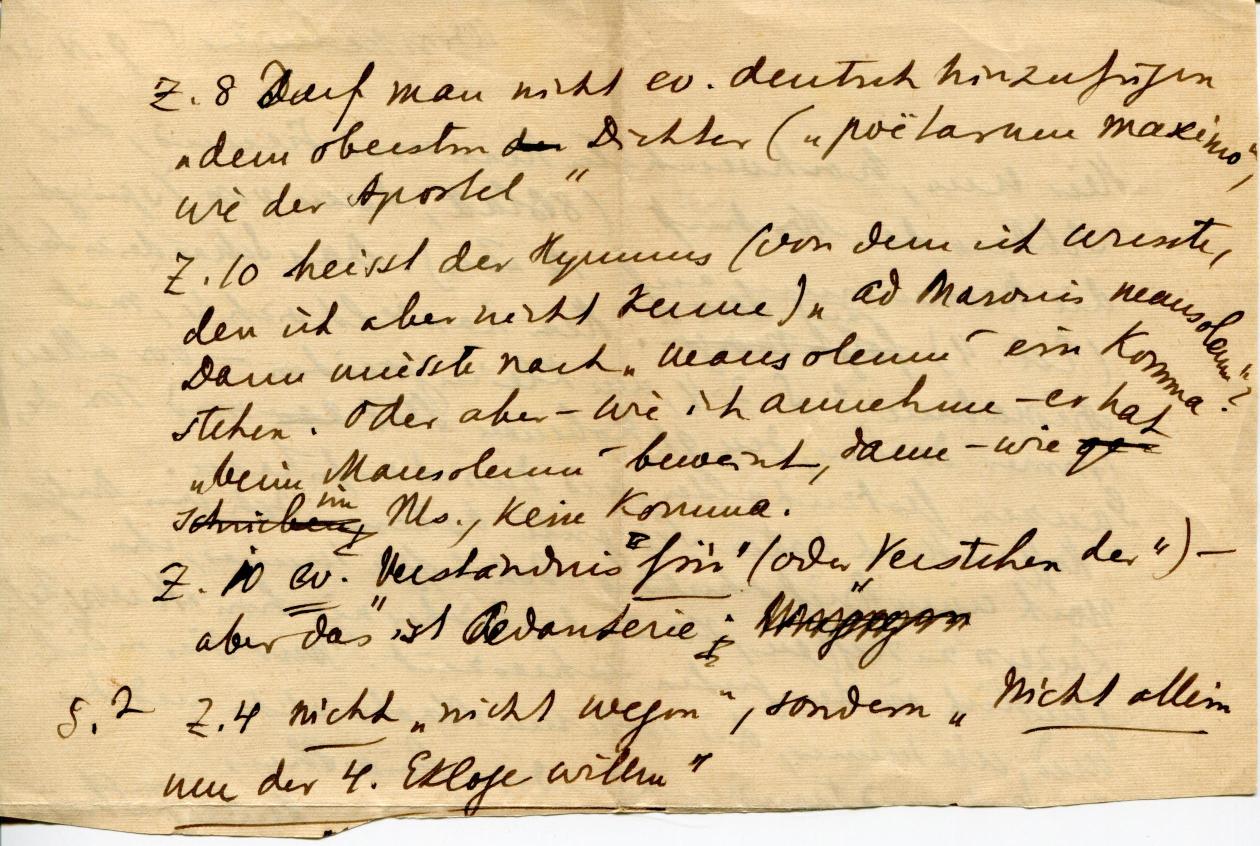 Z. 8 Darf man nicht ev. deutsch hinzufügen
„dem obersten der Dichter („poëtarum maximo",
wie der Apostel"
Z. 10 heisst der Hymnus (von dem ich wusste,
den ich aber nicht kenne) „ad Maronis mausoleum"?
Dann müsste nach „mausoleum" ein Komma
stehen. Oder aber – wie ich annehme – er hat
„beim Mausoleum" beweint, dann – wie ge
schrieben, im Ms., kein Komma.
Z. 10 ev. Verständnis "für" (oder "Verstehen der") –
aber das ist Pedanterie;
S. 2 Z. 4 nicht „nicht wegen", sondern „Nicht allein
um der 4. Ekloge willen"